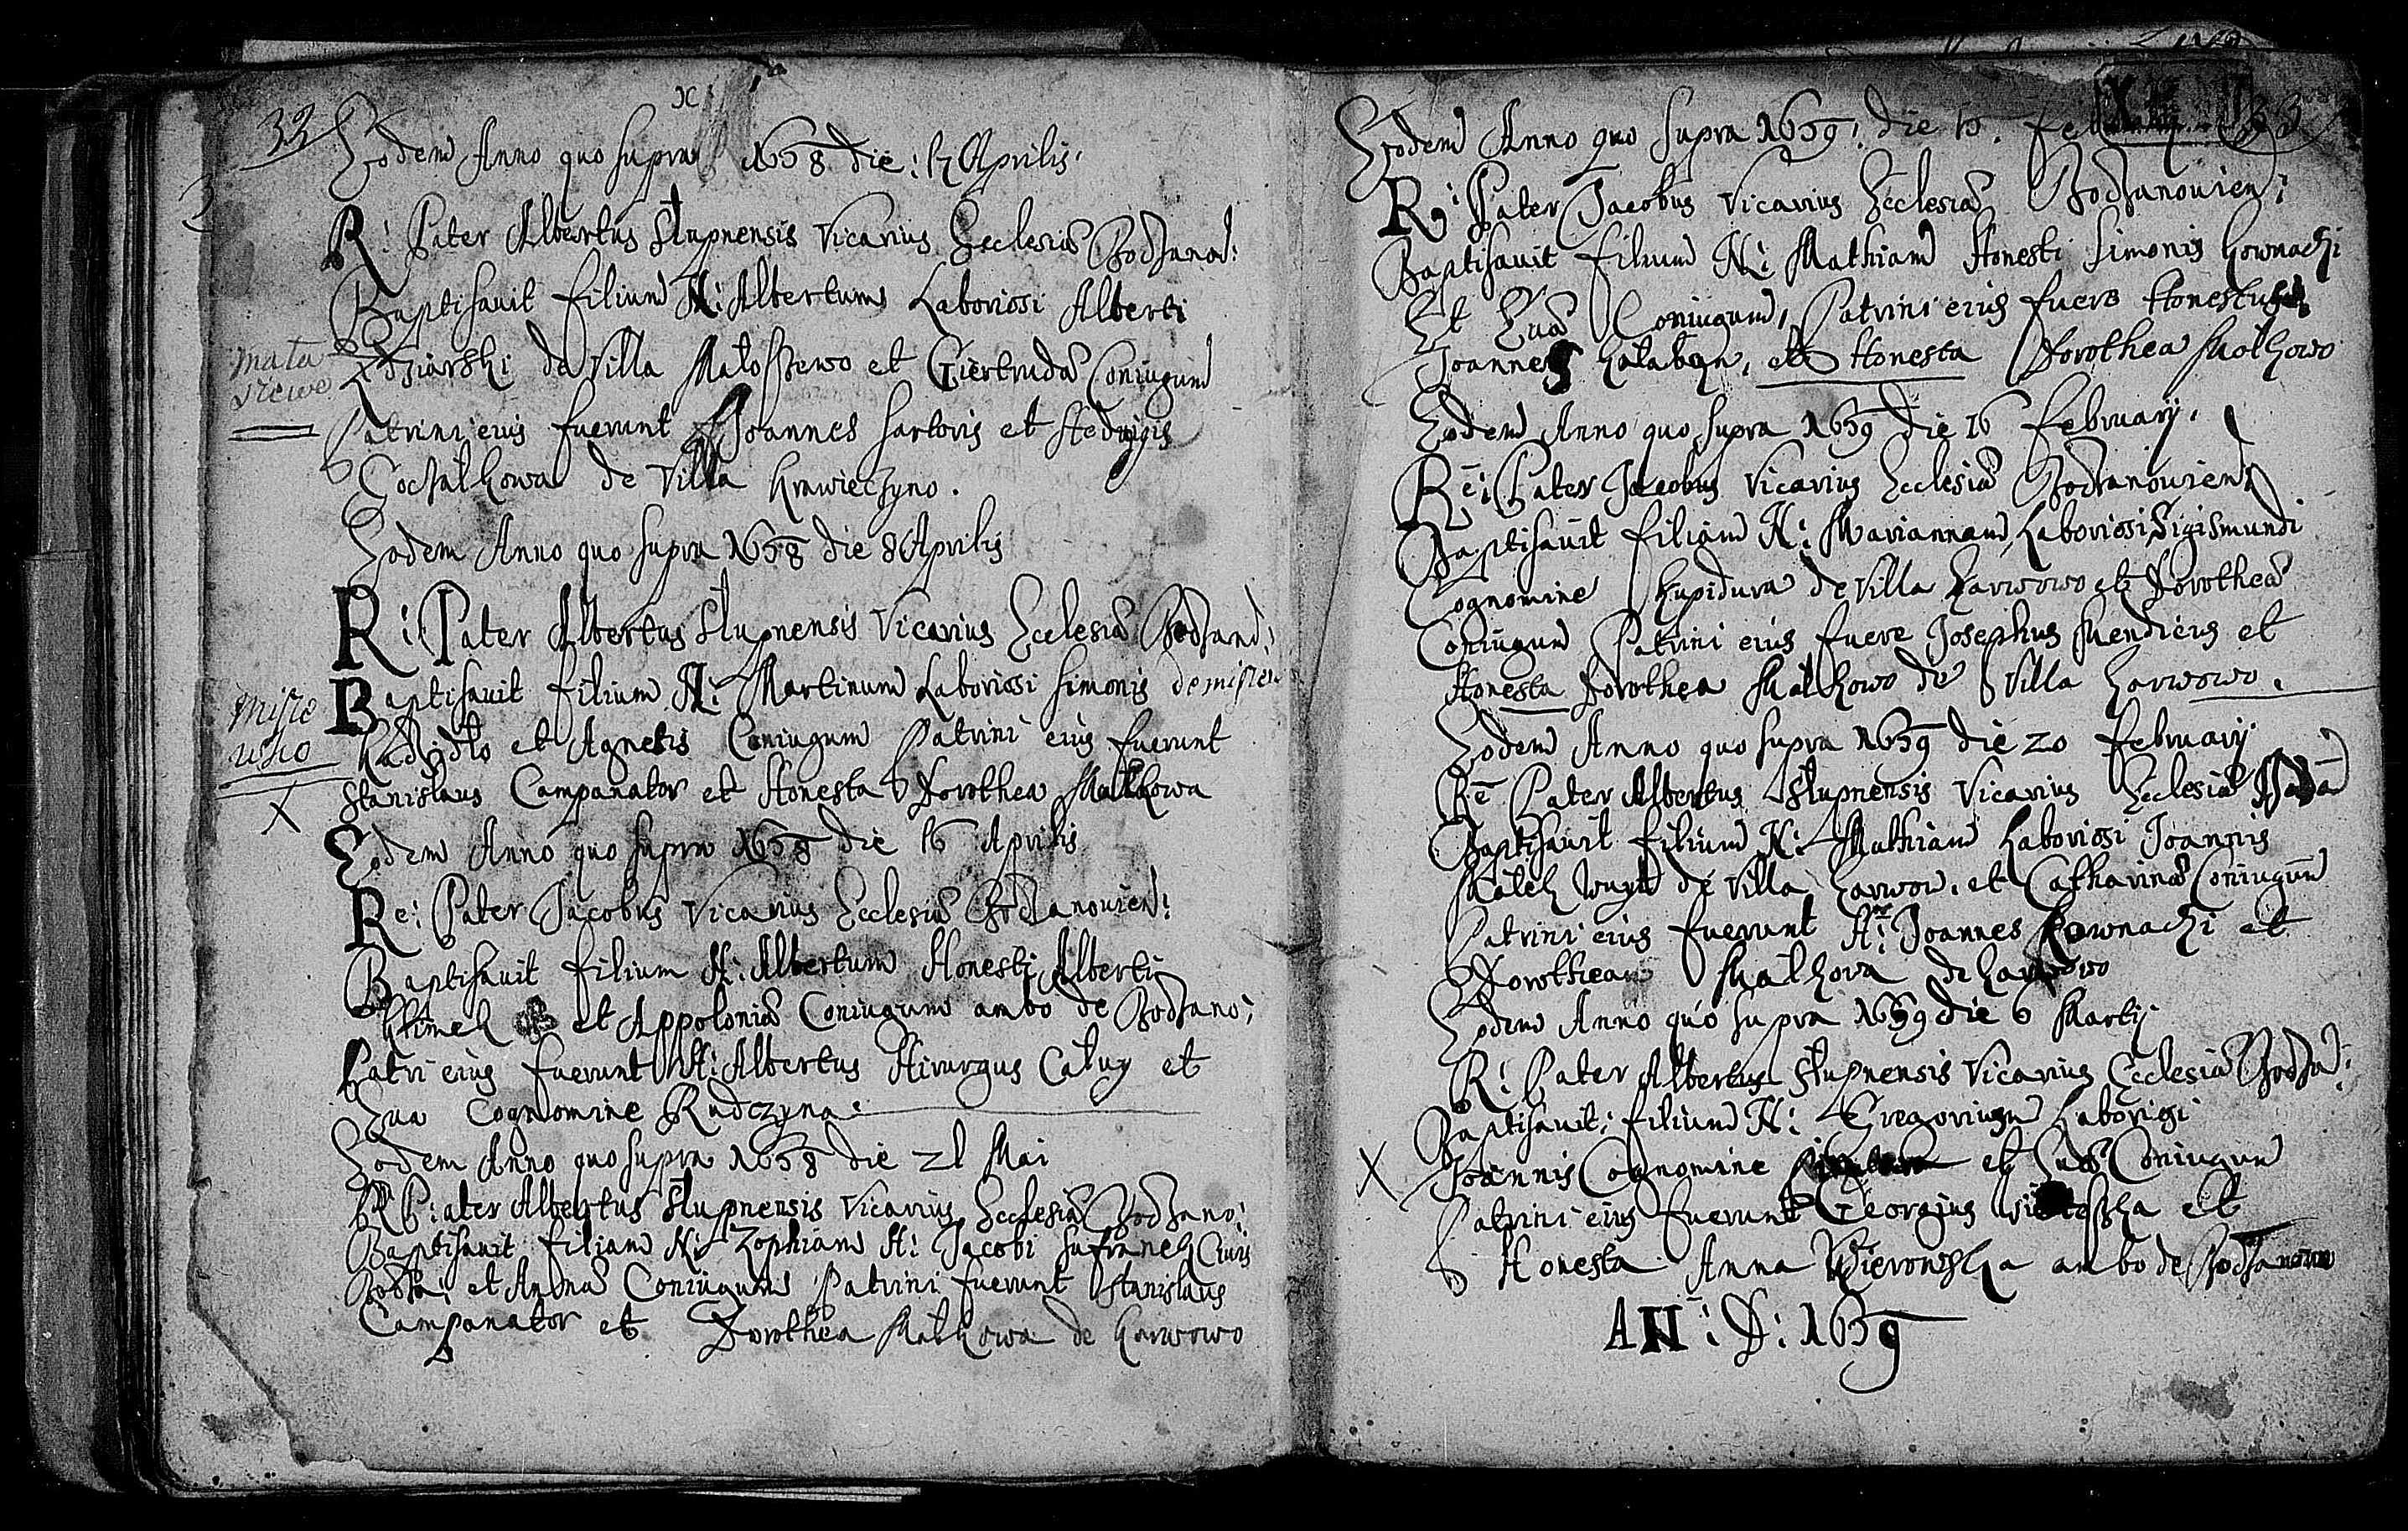 32
Eodem Anno quo supra 1638 die: Aprilis.
R: Pater Albertus Slupnensis Vicarius Ecclesiæ Bodzanov:
Baptisauit filium N: Albertum Laboriosi Alberti
Zdziarski de Villa Małoszewo et Giertrudæ Coniugum
Patrini eius fuerunt Joannes Sartoris et Hedvigis
Goczałkowa de Villa Krawieczyno.
Eodem Anno quo supra 1638 die 8 Aprilis
R: Pater Albertus Slupnensis Vicarius Ecclesiæ Bodzand:
Baptisauit filium N: Martinum Laboriosi Simonis
Radzidło et Agnetis Coniugum Patrini eius fuerunt
Stanislaus Campanator et Honesta Dorothea Małkowa
Eodem Anno quo supra 1638 die 16 Aprilis
Re: Pater Jacobus Vicarius Ecclesiæ Bodzanouien:
Baptisauit filium N: Albertum Honesti Alberti
Klimek et Appoloniæ Coniugum ambo de Bodzano:
Patri eius fuerunt H: Albertus Hirurgus Całuy et
Eua Cognomine Rudczyna.
Eodem Anno quo supra 1638 die 21 Mai
R P:ater Albertus Slupnensis Vicarius Ecclesiæ Bodzano:
Baptisauit filiam N: Zophiam H: Jacobi Safranek Ciuis
Bodza: et Annæ Coniugum Patrini fuerunt Stanislaus
Campanator et Dorothea Małkowa de Garwowo
33
Eodem Anno quo supra 1639: die
R: Pater Jacobus Vicarius Ecclesiæ Bodzanouien:
Baptisauit filium N: Mathiam Honesti Simonis Kownacki
Et Euæ Coniugum, Patrini eius fuere Honestus
Joannes et Honesta Dorothea Małkowo
Eodem Anno quo supra 1639 die 16 february.
Re: Pater Jacobus Vicarius Ecclesiæ Bodzanouien:
Baptisauit filiam N: Mariannam Laboriosi Sigismundi
Cognomine Skupidura de Villa Garwowo et Dorotheæ
Coniugum Patrini eius fuere Josephus Mendicus et
Honesta Dorothea Małkowo de Villa Garwowo.
Eodem Anno quo supra 1639 die 20 february
Re Pater Albertus Slupnensis Vicarius Ecclesiæ
Baptisauit filium N: Mathiam Laboriosi Joannis
Małek de Villa Garwow. et Catharinæ Coniugum
Patrini eius fuerunt H: Joannes Kownacki et
Dorothea Małkowa de Garwowo
Eodem Anno quo supra 1639 die 6 Marty
R: Pater Albertus Slupnensis Vicarius Ecclesiæ Bodza:
Baptisauit: filium N: Gregorium Laboriosi
Joannis Cognomine et Euæ Coniugum
Patrini eius fuerunt Georgius et
Honesta Anna ambo de Bodzanowo
AN: D: 1639